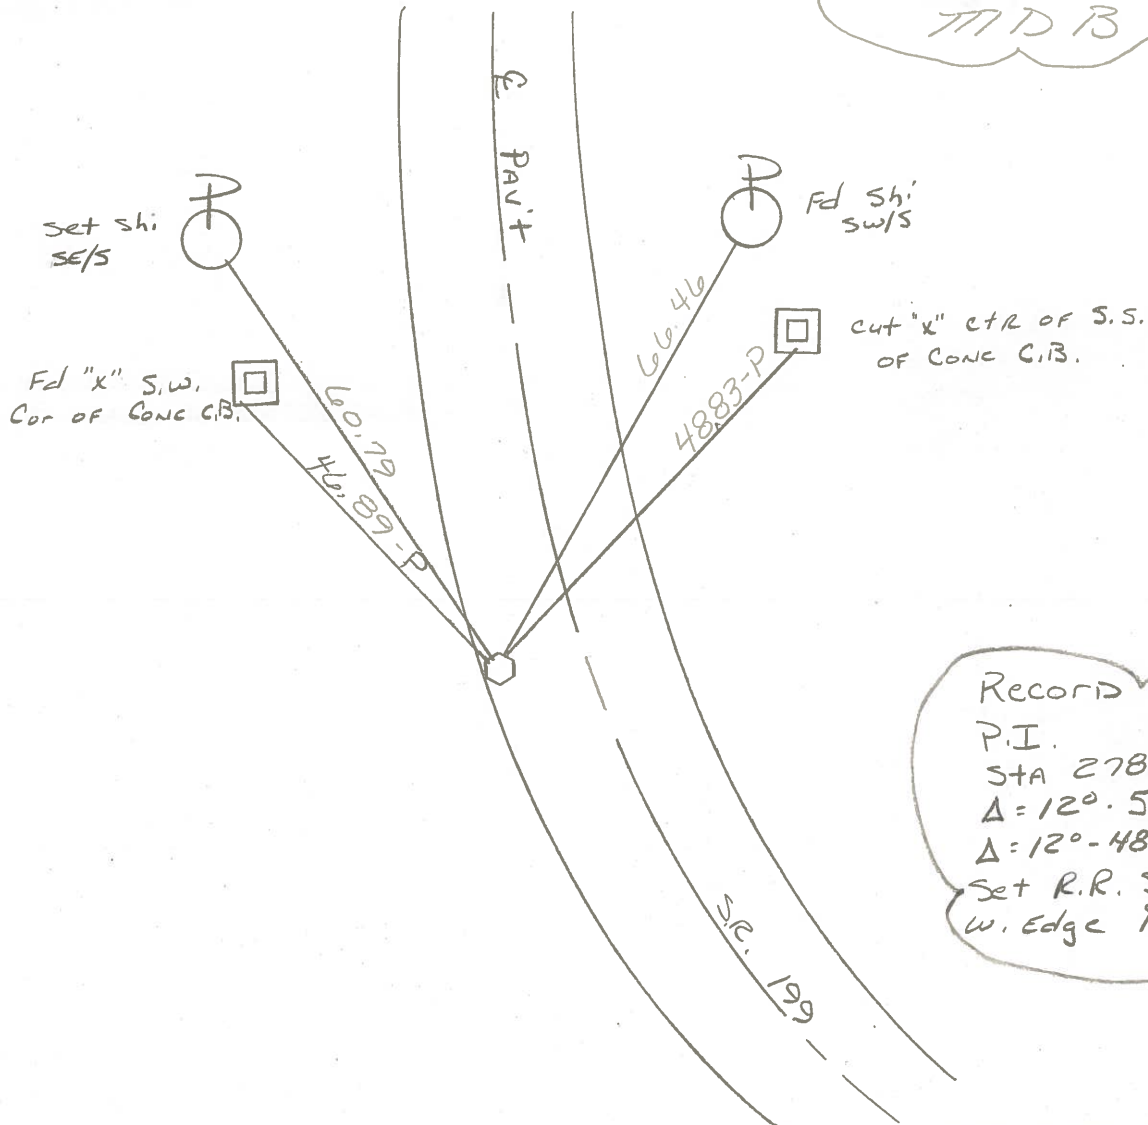 MDB
℄ PAV't
set shi
SE/S
Fd shi
SW/S
Fd "x" S.W.
Cor OF CONC C.B.
cut "x" ctR OF S.S.
OF CONC C.B.
60.79
46.89-P
66.46
48.83-P
S.R. 199
Record
P.I.
StA 278
Δ=12°-5
Δ=12°-48
Set R.R.
W. Edge